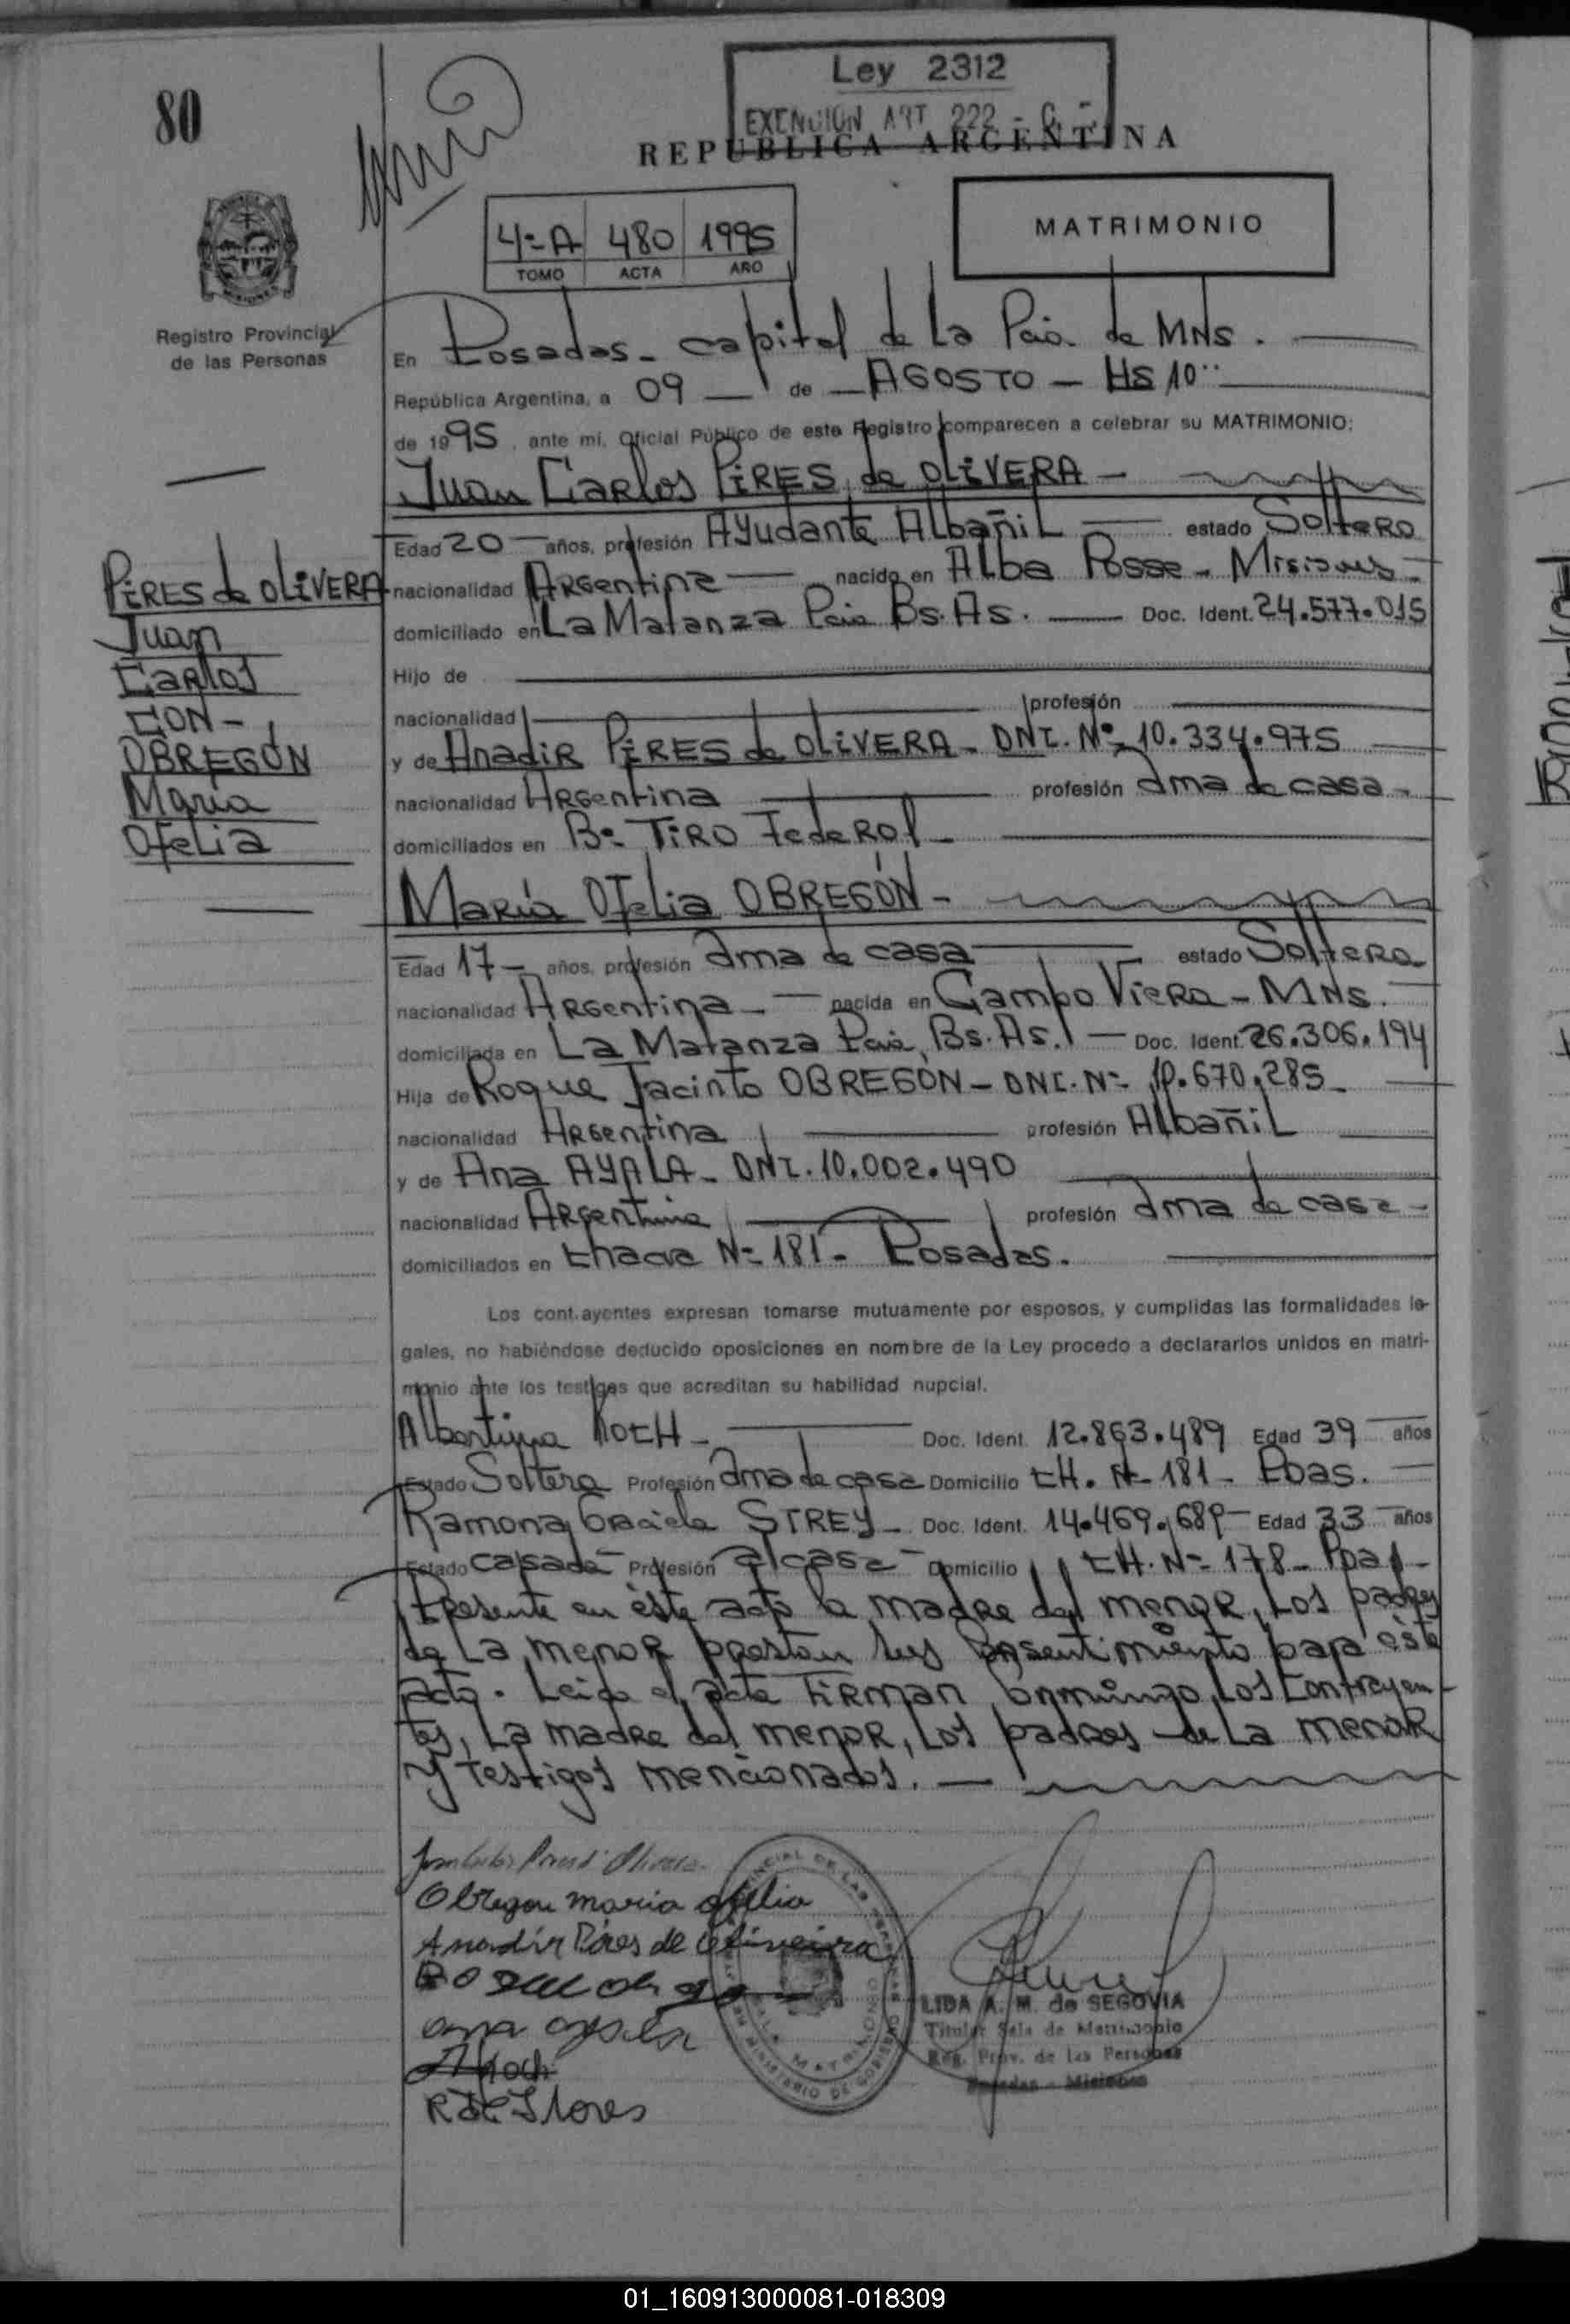 80
Ley 2312
EXENCION ART 222 - C.
REPUBLICA ARGENTINA
4º A 480 1995
TOMO ACTA AÑO
MATRIMONIO
Registro Provincial
de las Personas
En Posadas - capital de la Pcia. de MNs.
República Argentina, a 09 de AGOSTO - HS 10
de 1995, ante mi, Oficial Público de este Registro comparecen a celebrar su MATRIMONIO:
Juan Carlos PIRES de OLIVERA -
Edad 20 años, profesión Ayudante Albañil estado Soltero
nacionalidad Argentina nacido en Alba Posse - Misiones -
domiciliado en La Matanza Pcia Bs. As. Doc. Ident. 24.577.015
Hijo de
nacionalidad profesión
y de Anadir PIRES de OLIVERA - DNI. Nº 10.334.975
nacionalidad Argentina profesión Ama de casa -
domiciliados en Bº TIRO Federal -
María Ofelia OBREGÓN -
Edad 17 - años, profesión Ama de casa estado Soltera
nacionalidad Argentina - nacida en Campo Viera - MNs.
domiciliada en La Matanza Pcia, Bs. As. Doc. Ident. 26.306.194
Hija de Roque Jacinto OBREGÓN - DNI. Nº 10.670.285 -
nacionalidad Argentina profesión Albañil
y de Ana AYALA - DNI. 10.002.490
nacionalidad Argentina profesión Ama de casa -
domiciliados en Chacra Nº 181 - Posadas.
Los contrayentes expresan tomarse mutuamente por esposos, y cumplidas las formalidades le-
gales, no habiéndose deducido oposiciones en nombre de la Ley procedo a declararlos unidos en matri-
monio ante los testigos que acreditan su habilidad nupcial.
Albertina KOCH - Doc. Ident. 12.863.489 Edad 39 años
Estado Soltera Profesión Ama de casa Domicilio CH. Nº 181 - Pdas.
Ramona Graciela STREY - Doc. Ident. 14.469.689 - Edad 33 años
Estado casada Profesión a/casa Domicilio CH. Nº 178 - Pdas -
Presente en este acto la madre del menor, Los padres
de La menor prestan sus Consentimiento para este
acto. Leida el acta Firman conmingo, Los Contrayen-
tes, La madre del menor, Los padres de La menor
y Testigos mencionados. -
PIRES de OLIVERA
Juan
Carlos
CON -
OBREGÓN
María
Ofelia
Obregon maria ofelia
Anadir Pires de Oliveira
ana ayala
AKoch
LIDA A. M. de SEGOVIA
Titular Sala de Matrimonio
Reg. Prov. de las Personas
Posadas - Misiones
01_160913000081-018309